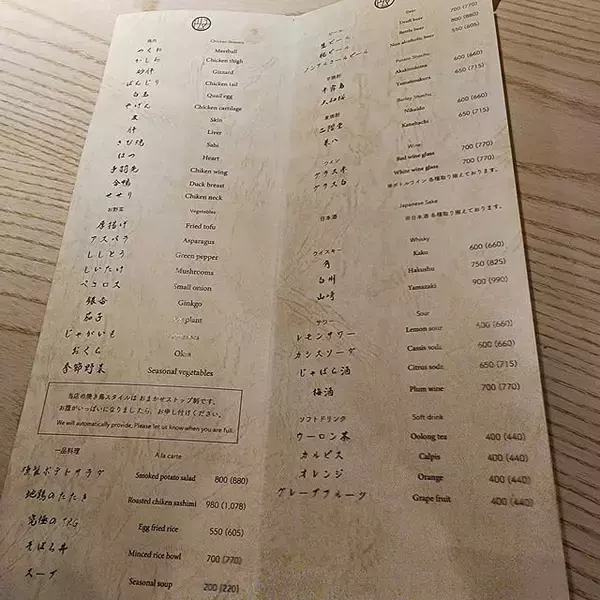 焼鳥 Chicken Skewers
つくね Meatball
かしわ Chicken thigh
砂肝 Gizzard
ぼんじり Chicken tail
白玉 Quail egg
やげん Chicken cartilage
皮 Skin
肝 Liver
さび焼 Sabi
はつ Heart
手羽先 Chiken wing
合鴨 Duck breast
せせり Chiken neck
お野菜 Vegetables
厚揚げ Fried tofu
アスパラ Asparagus
ししとう Green pepper
しいたけ Mushrooms
ペコロス Small onion
銀杏 Ginkgo
茄子
じゃがいも
おくら Okra
季節野菜 Seasonal vegetables
当店の焼き鳥スタイルは おまかせストップ制です。
お腹がいっぱいになりましたら、お申し付けください。
We will automatically provide. Please let us know when you are full.
一品料理 A la carte
燻製ポテトサラダ Smoked potato salad 800 (880)
地鶏のたたき Roasted chiken sashimi 980 (1,078)
究極のTKG Egg fried rice 550 (605)
そぼろ丼 Minced rice bowl 700 (770)
スープ Seasonal soup 200 (220)
ビール Beer
生ビール Draft beer 700 (770)
瓶ビール Bottle beer 800 (880)
ノンアルコールビール Non alcoholic beer 550 (605)
芋焼酎 Potato Shochu
赤霧島 Akakirishima 600 (660)
大和桜 Yamatozakura 650 (715)
麦焼酎 Barley Shochu
二階堂 Nikaido 600 (660)
兼八 Kanehachi 650 (715)
ワイン Wine
グラス赤 Red wine glass 700 (770)
グラス白 White wine glass 700 (770)
※ボトルワイン 各種取り揃えております。
日本酒 Japanese Sake
※日本酒 各種取り揃えております。
ウイスキー Whisky
角 Kaku 600 (660)
白州 Hakushu 750 (825)
山崎 Yamazaki 900 (990)
サワー Sour
レモンサワー Lemon sour 600 (660)
カシスソーダ Cassis soda 600 (660)
じゃばら酒 Citrus soda 650 (715)
梅酒 Plum wine 700 (770)
ソフトドリンク Soft drink
ウーロン茶 Oolong tea 400 (440)
カルピス Calpis 400 (440)
オレンジ Orange 400 (440)
グレープフルーツ Grape fruit 400 (440)